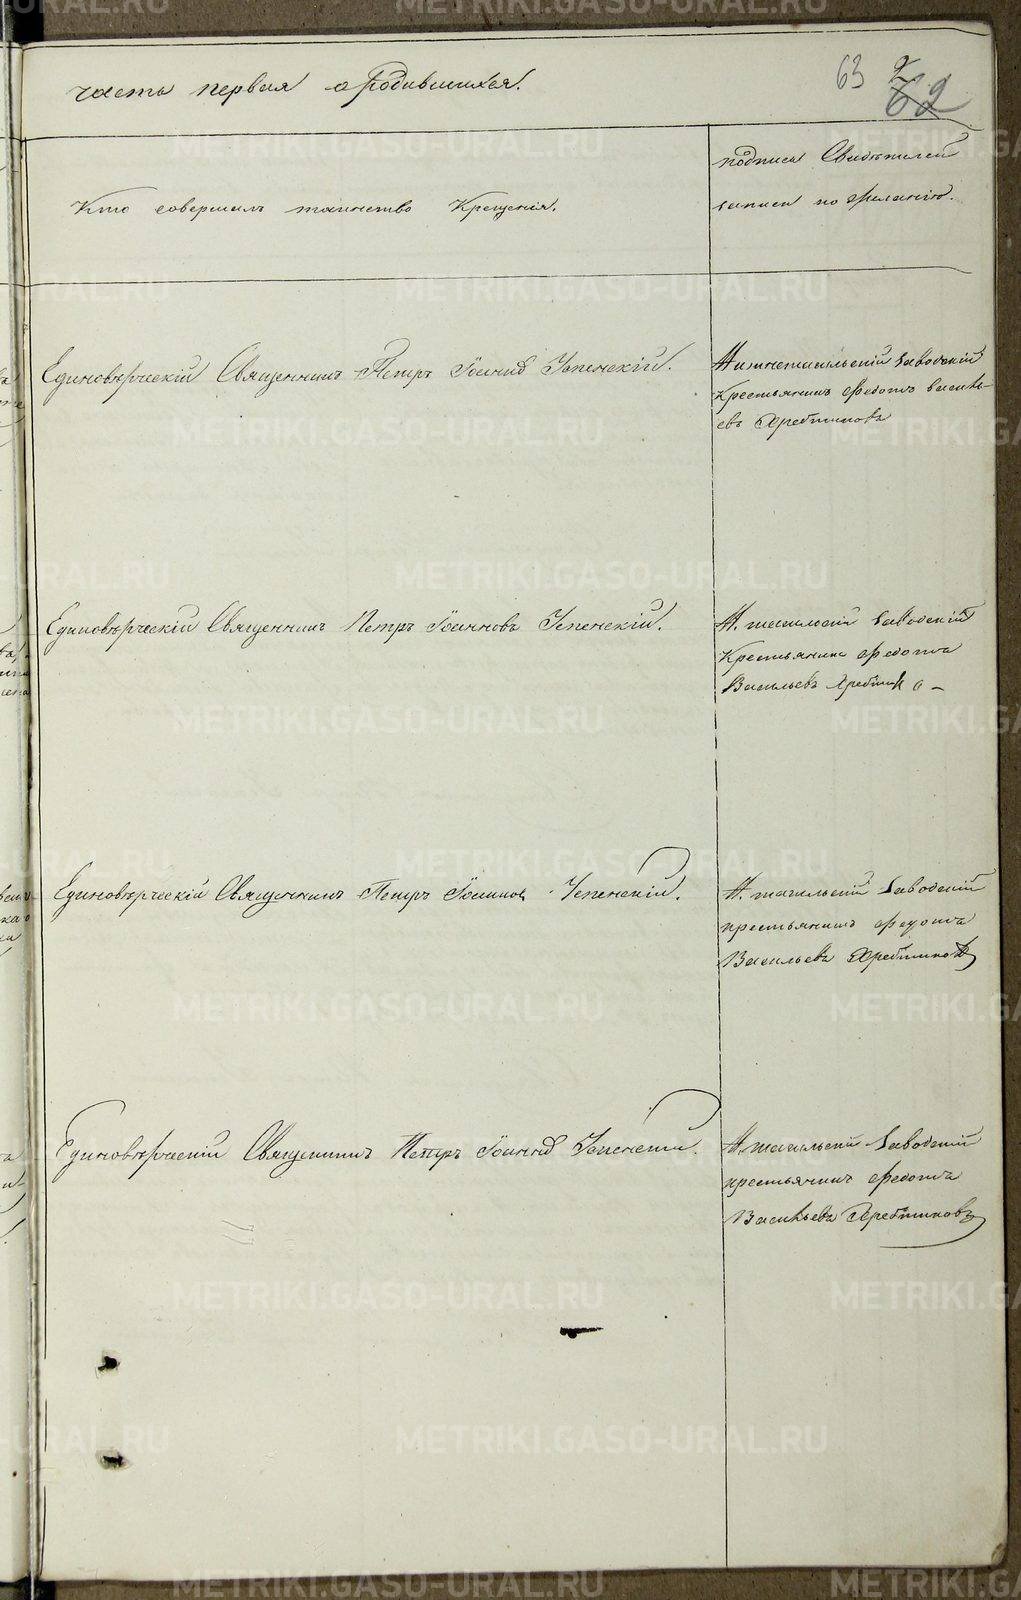 часть первая о Родившихся.
63
62
Кто совершалъ таинство Крещенія.
подписи Свидѣтелей
записи по желанію.
Единовѣрческій Священникъ Петръ Іоаннов Успенскій.
Нижнетагильскій Заводскій
Крестьянинъ Федотъ Василь-
евъ Хребтиковъ
Единовѣрческій Священникъ Петръ Іоанновъ Успенскій.
Н. тагильскій Заводскій
Крестьянинъ Федотъ
Васильевъ
Единовѣрческій Священникъ Петръ Іоаннов Успенскій.
Н. тагильскій Заводскій
крестьянинъ Федотъ
Васильевъ Хребтиковъ
Единовѣрческій Священникъ Петръ Іоаннов Успенскій.
Н. тагильскій Заводскій
крестьянинъ Федотъ
Васильевъ Хребтиковъ
METRIKI.GASO-URAL.RU